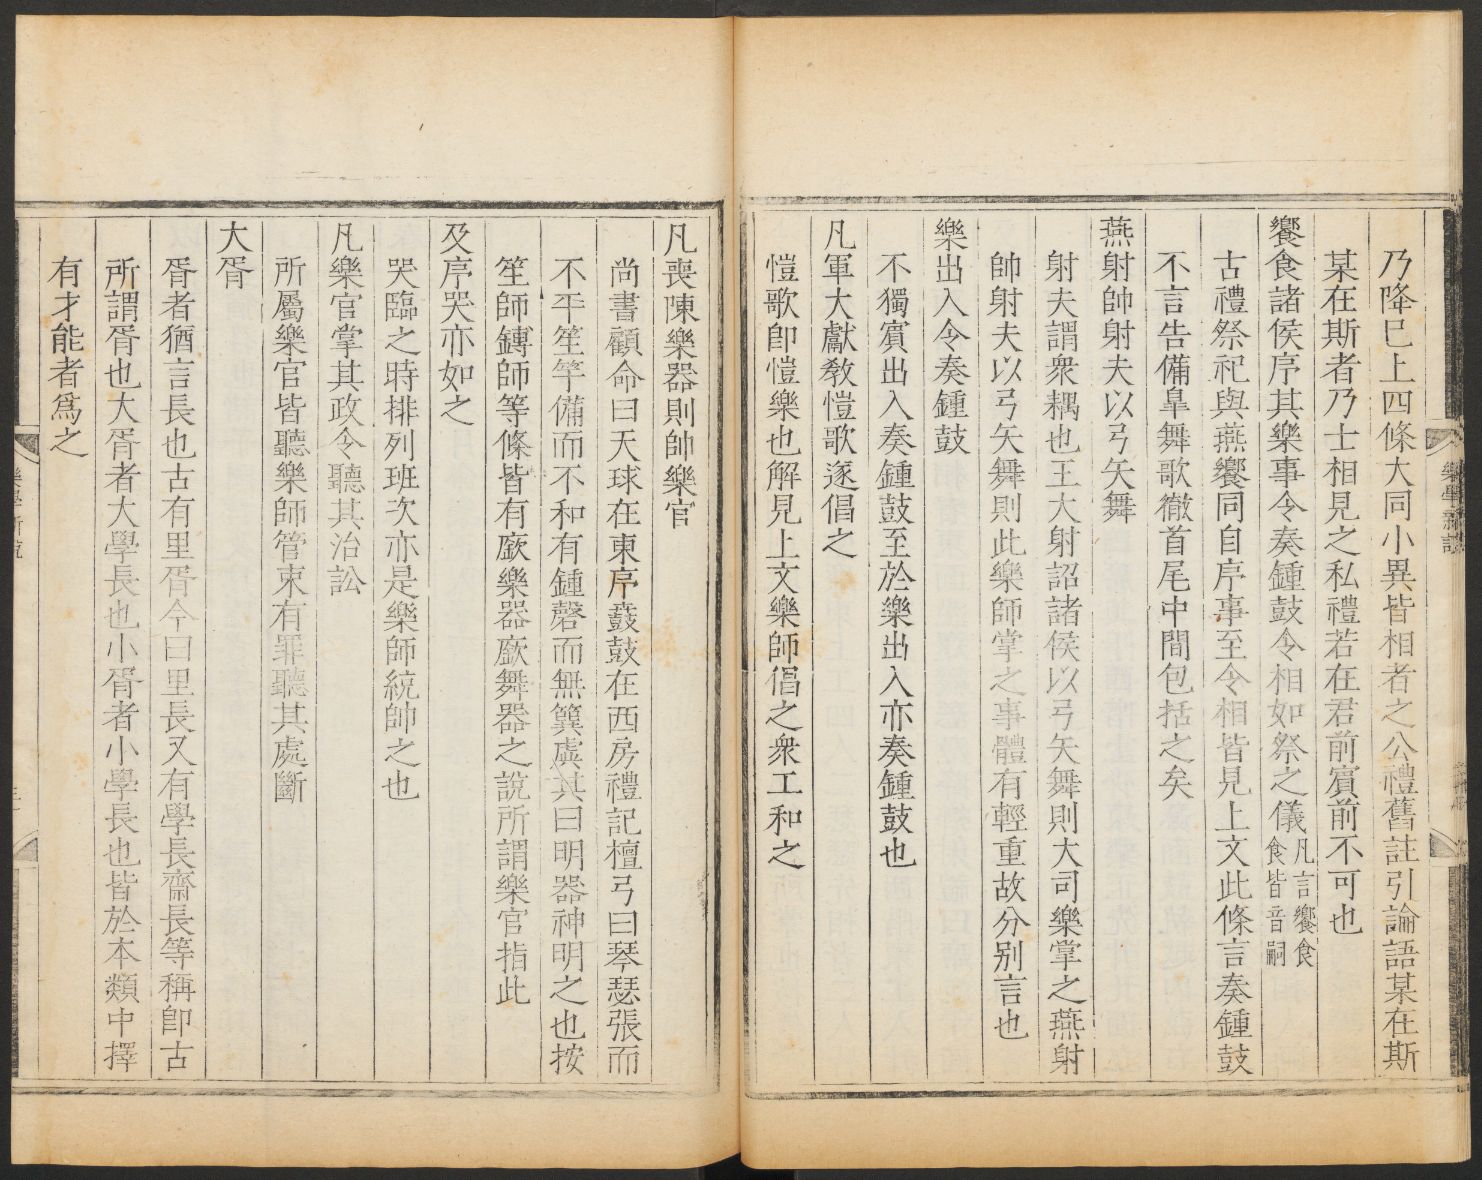 乃降巳上四條大同小異皆相者之公禮舊註引論語某在斯
某在斯者乃士相見之私禮若在君前賓前不可也
饗食諸侯序其樂事令奏鍾鼓令相如祭之儀凡言饗食食皆音嗣
古禮祭祀與燕饗同自序事至令相皆見上文此條言奏鍾鼓
不言告備臯舞歌徹首尾中間包括之矣
燕射帥射夫以弓矢舞
射夫謂衆耦也王大射詔諸侯以弓矢舞則大司樂掌之燕射
帥射夫以弓矢舞則此樂師掌之事體有輕重故分别言也
樂出入令奏鍾鼓
不獨賓出入奏鍾鼓至於樂出入亦奏鍾鼓也
凡軍大獻敎愷歌逐倡之
愷歌卽愷樂也解見上文樂師倡之衆工和之
凡喪陳樂器則帥樂官
尚書顧命曰天球在東序鼖鼓在西房禮記檀弓曰琴瑟張而
不平笙竽備而不和有鍾磬而無簨虡其曰明器神明之也按
笙師鏄師等條皆有廞樂器廞舞器之說所謂樂官指此
及序哭亦如之
哭臨之時排列班次亦是樂師統帥之也
凡樂官掌其政令聽其治訟
所屬樂官皆聽樂師管束有罪聽其處斷
大胥
胥者猶言長也古有里胥今曰里長又有學長齋長等稱卽古
所謂胥也大胥者大學長也小胥者小學長也皆於本類中擇
有才能者爲之
樂學新說